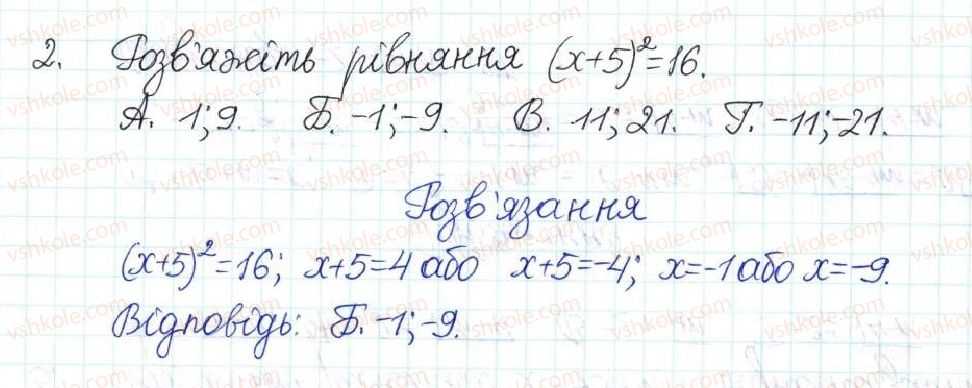 2. Розв'яжіть рівняння (x+5)²=16.
А. 1; 9. Б. -1; -9. В. 11; 21. Г. -11; -21.
Розв'язання
(x+5)²=16; x+5=4 або x+5=-4; x=-1 або x=-9.
Відповідь: Б. -1; -9.